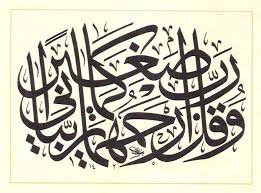 وقل رب ارحمهما كما ربياني صغيرا